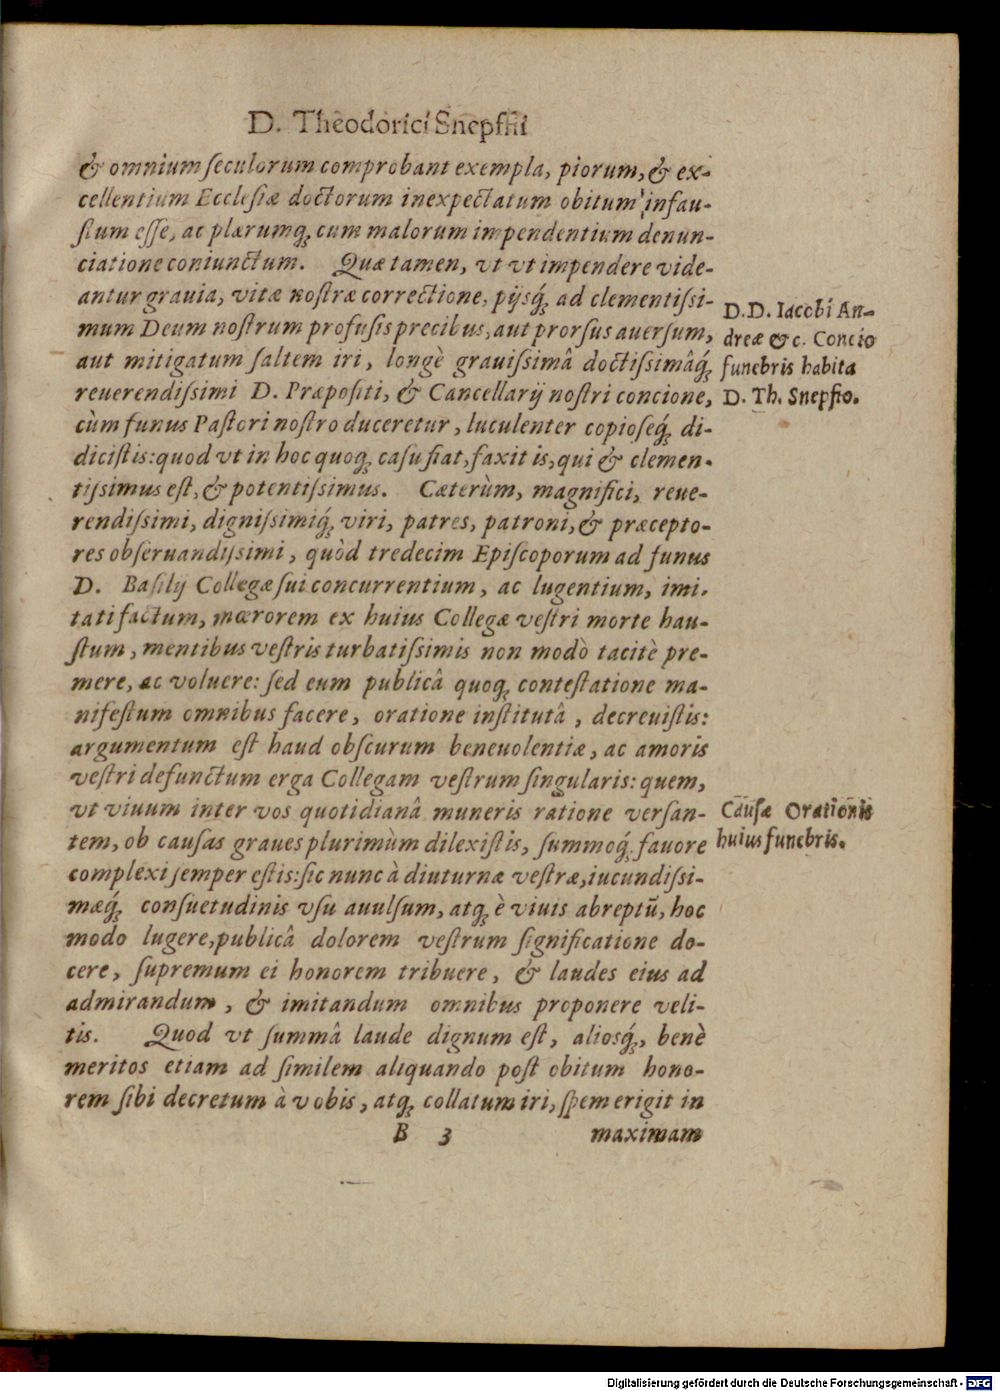 D. Theodorici Snepffii
& omnium ſeculorum comprobant exempla, piorum, & ex-
cellentium Eccleſiæ doctorum inexpectatum obitum infau-
ſtum eſſe, ac plærumq́; cum malorum impendentium denun-
ciatione coniunctum. Quæ tamen, vt vt impendere vide-
antur grauia, vitæ noſtræ correctione, pijsq́; ad clementiſsi-
mum Deum noſtrum profuſis precibus, aut prorſus auerſum,
aut mitigatum ſaltem iri, longè grauiſsimâ doctiſsimâq́;
reuerendiſsimi D. Præpoſiti, & Cancellarij noſtri concione,
cùm funus Paſtori noſtro duceretur, luculenter copioſeq́; di-
diciſtis: quod vt in hoc quoq; caſu fiat, faxit is, qui & clemen-
tiſsimus eſt, & potentiſsimus. Cæterùm, magnifici, reue-
rendiſsimi, digniſsimiq́; viri, patres, patroni, & præcepto-
res obſeruandiſsimi, quòd tredecim Epiſcoporum ad funus
D. Baſilij Collegæ ſui concurrentium, ac lugentium, imi-
tati factum, mœrorem ex huius Collegæ veſtri morte hau-
ſtum, mentibus veſtris turbatiſsimis non modò tacitè pre-
mere, ac voluere: ſed eum publicâ quoq; conteſtatione ma-
nifeſtum omnibus facere, oratione inſtitutâ, decreuiſtis:
argumentum eſt haud obſcurum beneuolentiæ, ac amoris
veſtri defunctum erga Collegam veſtrum ſingularis: quem,
vt viuum inter vos quotidianâ muneris ratione verſan-
tem, ob cauſas graues plurimùm dilexiſtis, ſummoq́; fauore
complexi ſemper eſtis: ſic nunc à diuturnæ veſtræ, iucundiſsi-
mæq́; conſuetudinis vſu auulſum, atq; è viuis abreptũ, hoc
modo lugere, publicâ dolorem veſtrum ſignificatione do-
cere, ſupremum ei honorem tribuere, & laudes eius ad
admirandum, & imitandum omnibus proponere veli-
tis. Quod vt ſummâ laude dignum eſt, aliosq́;, benè
meritos etiam ad ſimilem aliquando poſt obitum hono-
rem ſibi decretum à vobis, atq; collatum iri, ſpem erigit in
B 3 maximam
D.D. Iacobi An-
dreæ &c. Concio
funebris habita
D. Th. Snepfio.
Cauſæ Orationis
huius funebris.
Digitalisierung gefördert durch die Deutsche Forschungsgemeinschaft - DFG